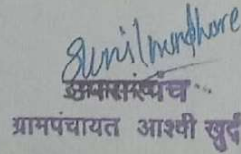 Sunil mundhore
उपसरपंच
ग्रामपंचायत आश्वी खुर्द